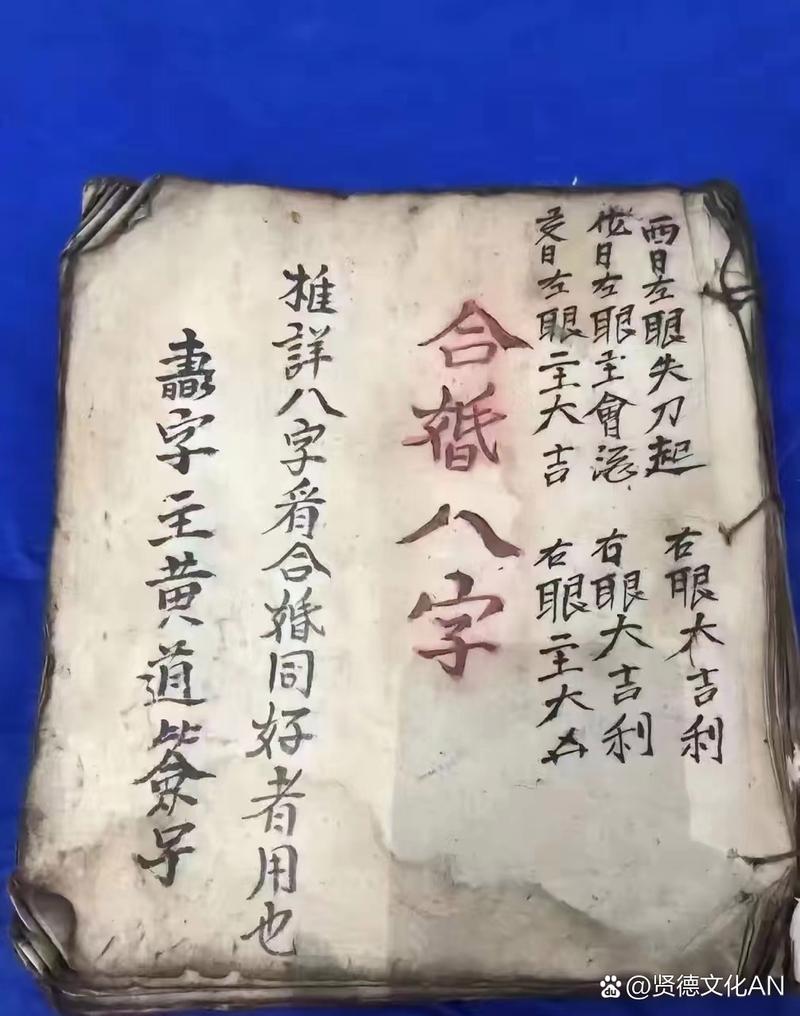 酉日左眼失刀起 右眼大吉利
日左眼主會 右眼大吉利
日左眼主大吉 右眼主大
合婚八字
推詳八字看合婚同好者用也
壽字主黄道
@贤德文化AN